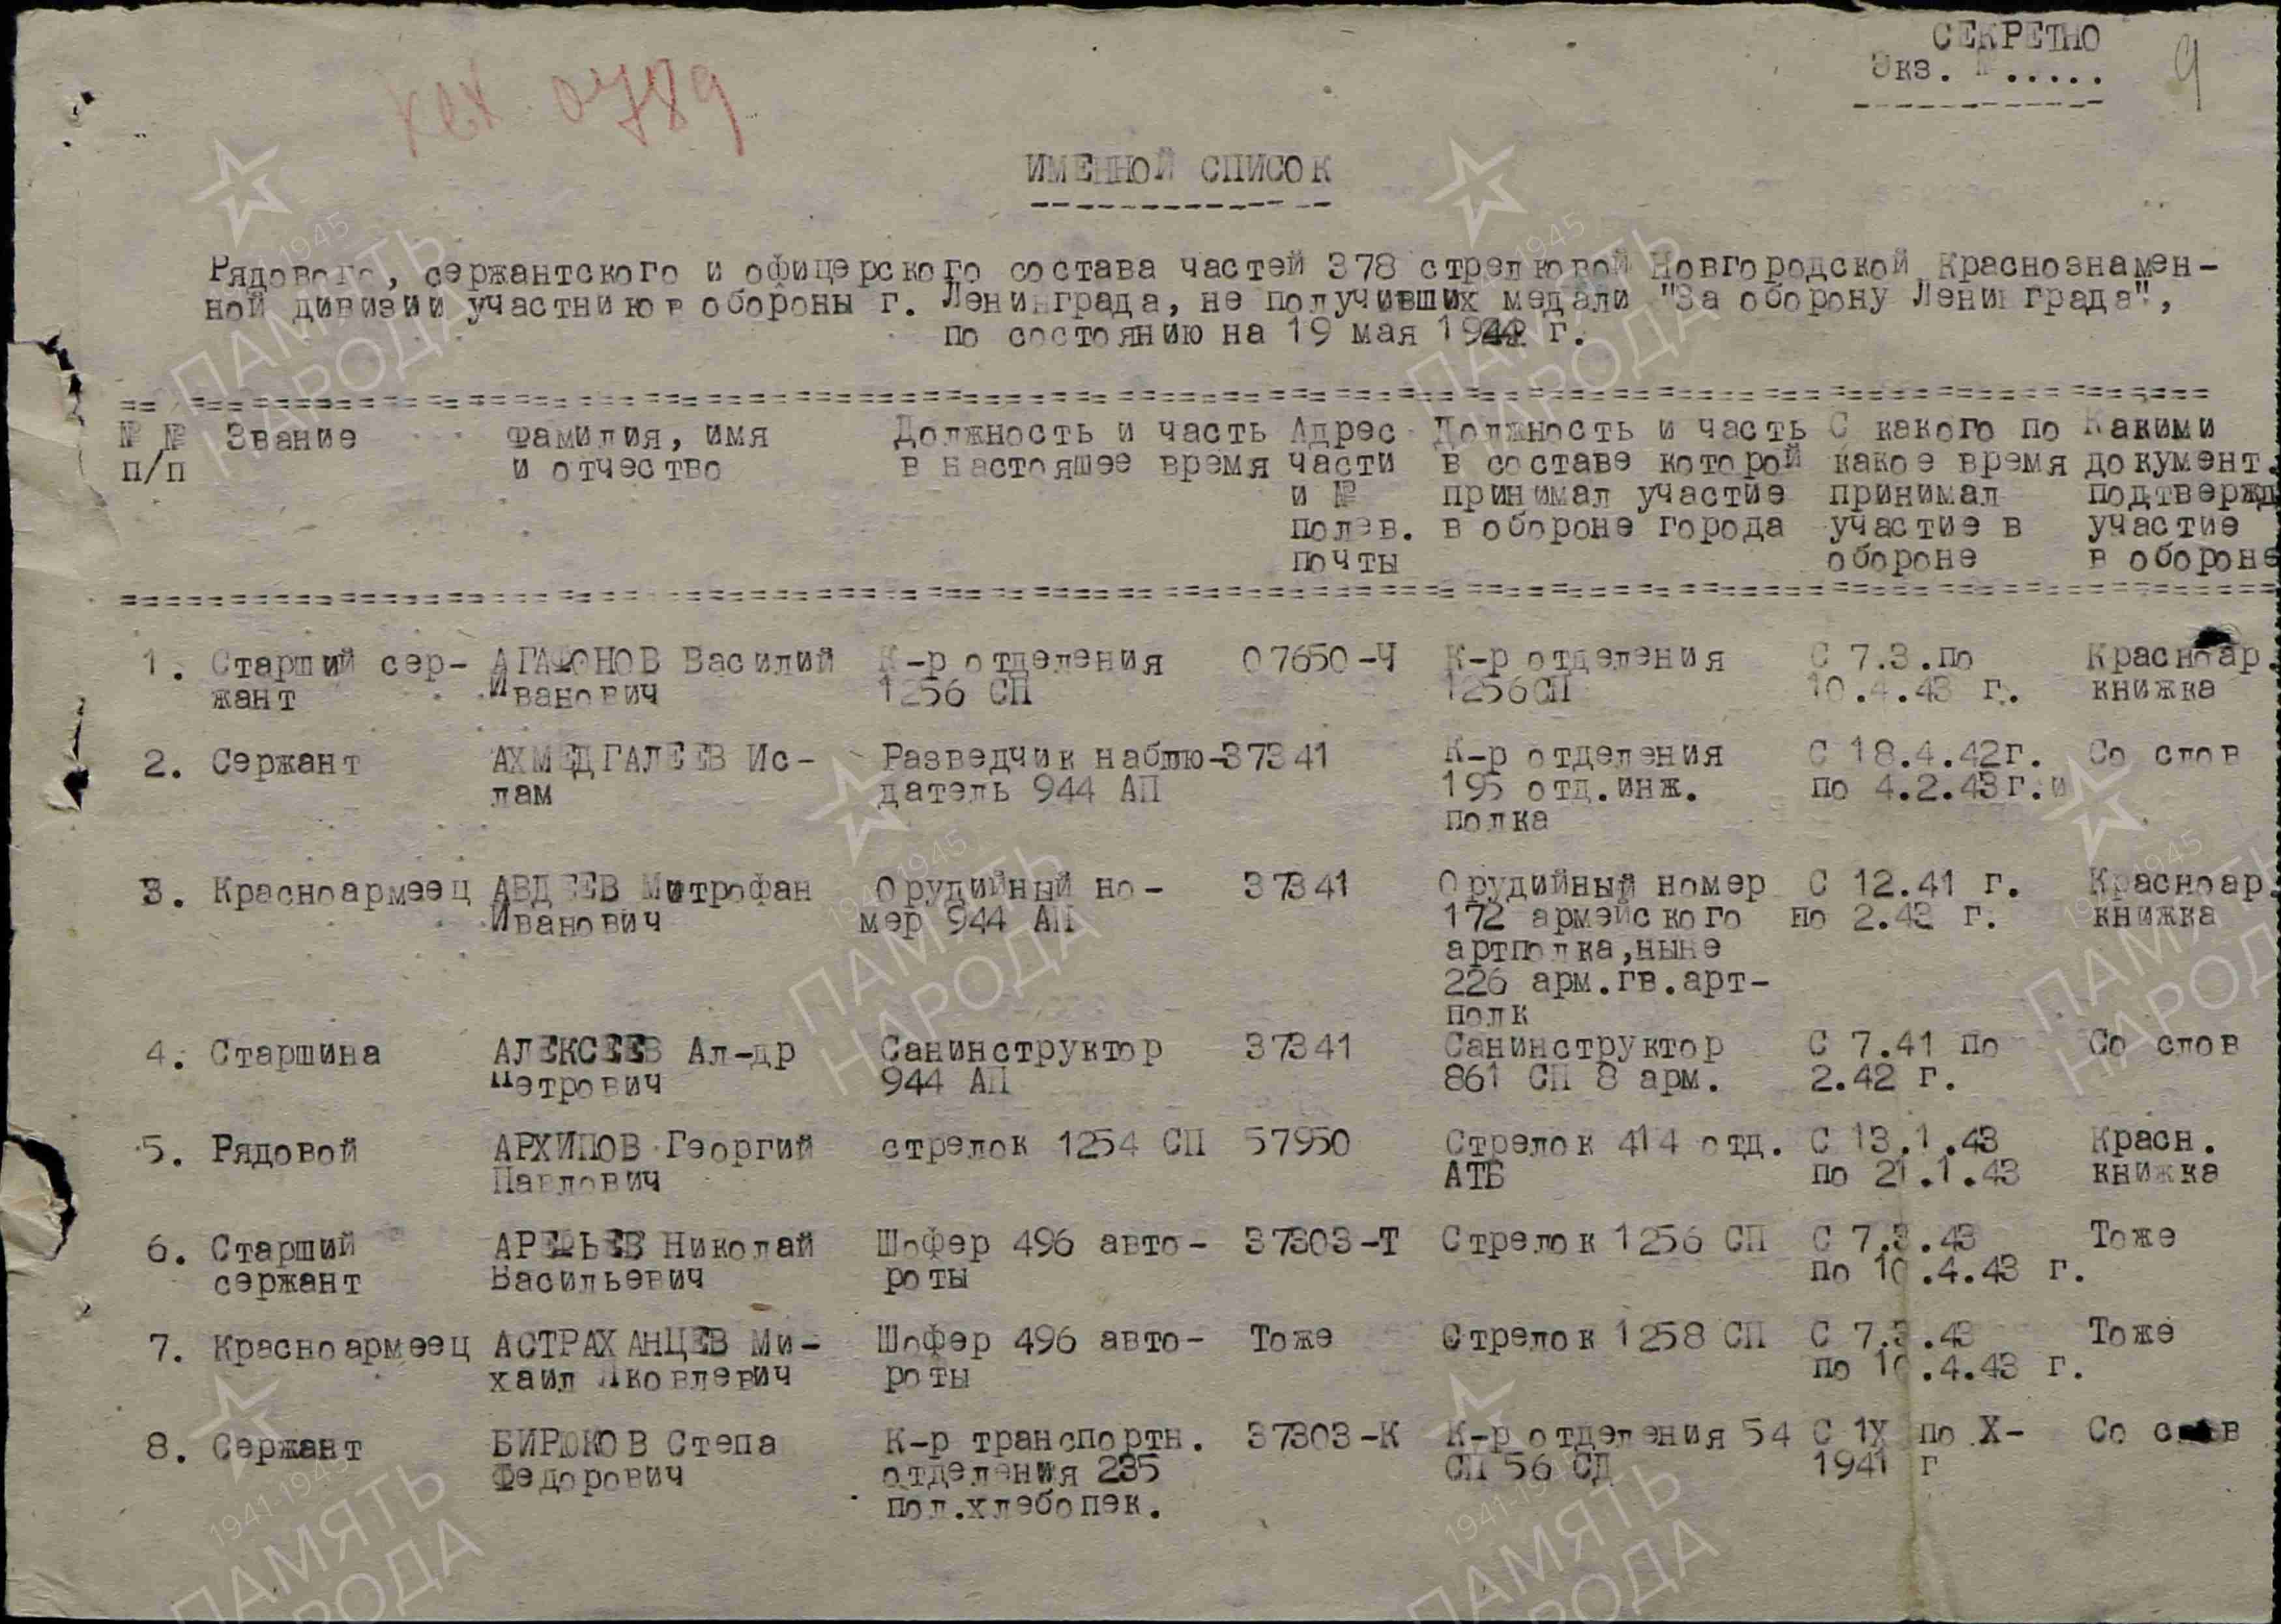 СЕКРЕТНО
Экз. № .....
9
ИМЕННОЙ СПИСОК
Рядового, сержантского и офицерского состава частей 378 стрелковой Новгородской Краснознамен-
ной дивизии участников обороны г. Ленинграда, не получивших медали "За оборону Ленинграда",
по состоянию на 19 мая 1944 г.
№ № Звание Фамилия, имя Должность и часть Адрес Должность и часть С какого по Какими
п/п и отчество в настоящее время части в составе которой какое время документ.
и № принимал участие принимал подтвержд
полев. в обороне города участие в участие
почты обороне в обороне
1. Старший сер- АГАФОНОВ Василий К-р отделения 07650-Ч К-р отделения С 7.3.по Красноар.
жант Иванович 1256 СП 1256СП 10.4.43 г. книжка
2. Сержант АХМЕДГАЛЕЕВ Ис- Разведчик наблю-37341 К-р отделения С 18.4.42г. Со слов
лам датель 944 АП 195 отд.инж. по 4.2.43г.и
полка
3. Красноармеец АВДЕЕВ Митрофан Орудийный но- 37341 Орудийный номер С 12.41 г. Красноар.
Иванович мер 944 АП 172 армейского по 2.43 г. книжка
артполка,ныне
226 арм.гв.арт-
полк
4. Старшина АЛЕКСЕЕВ Ал-др Санинструктор 37341 Санинструктор С 7.41 по Со слов
Петрович 944 АП 861 СП 8 арм. 2.42 г.
5. Рядовой АРХИПОВ Георгий стрелок 1254 СП 57950 Стрелок 414 отд. С 13.1.43 Красн.
Павлович АТБ по 21.1.43 книжка
6. Старший АРЕФЬЕВ Николай Шофер 496 авто- 37303-Т Стрелок 1256 СП С 7.3.43 Тоже
сержант Васильевич роты по 10.4.43 г.
7. Красноармеец АСТРАХАНЦЕВ Ми- Шофер 496 авто- Тоже Стрелок 1258 СП С 7.3.43 Тоже
хаил Яковлевич роты по 10.4.43 г.
8. Сержант БИРЮКОВ Степа К-р транспортн. 37303-К К-р отделения 54 С 1Х по Х- Со слов
Федорович отделения 235 СП 56 СД 1941 г
пол.хлебопек.
1941-1945
ПАМЯТЬ
НАРОДА